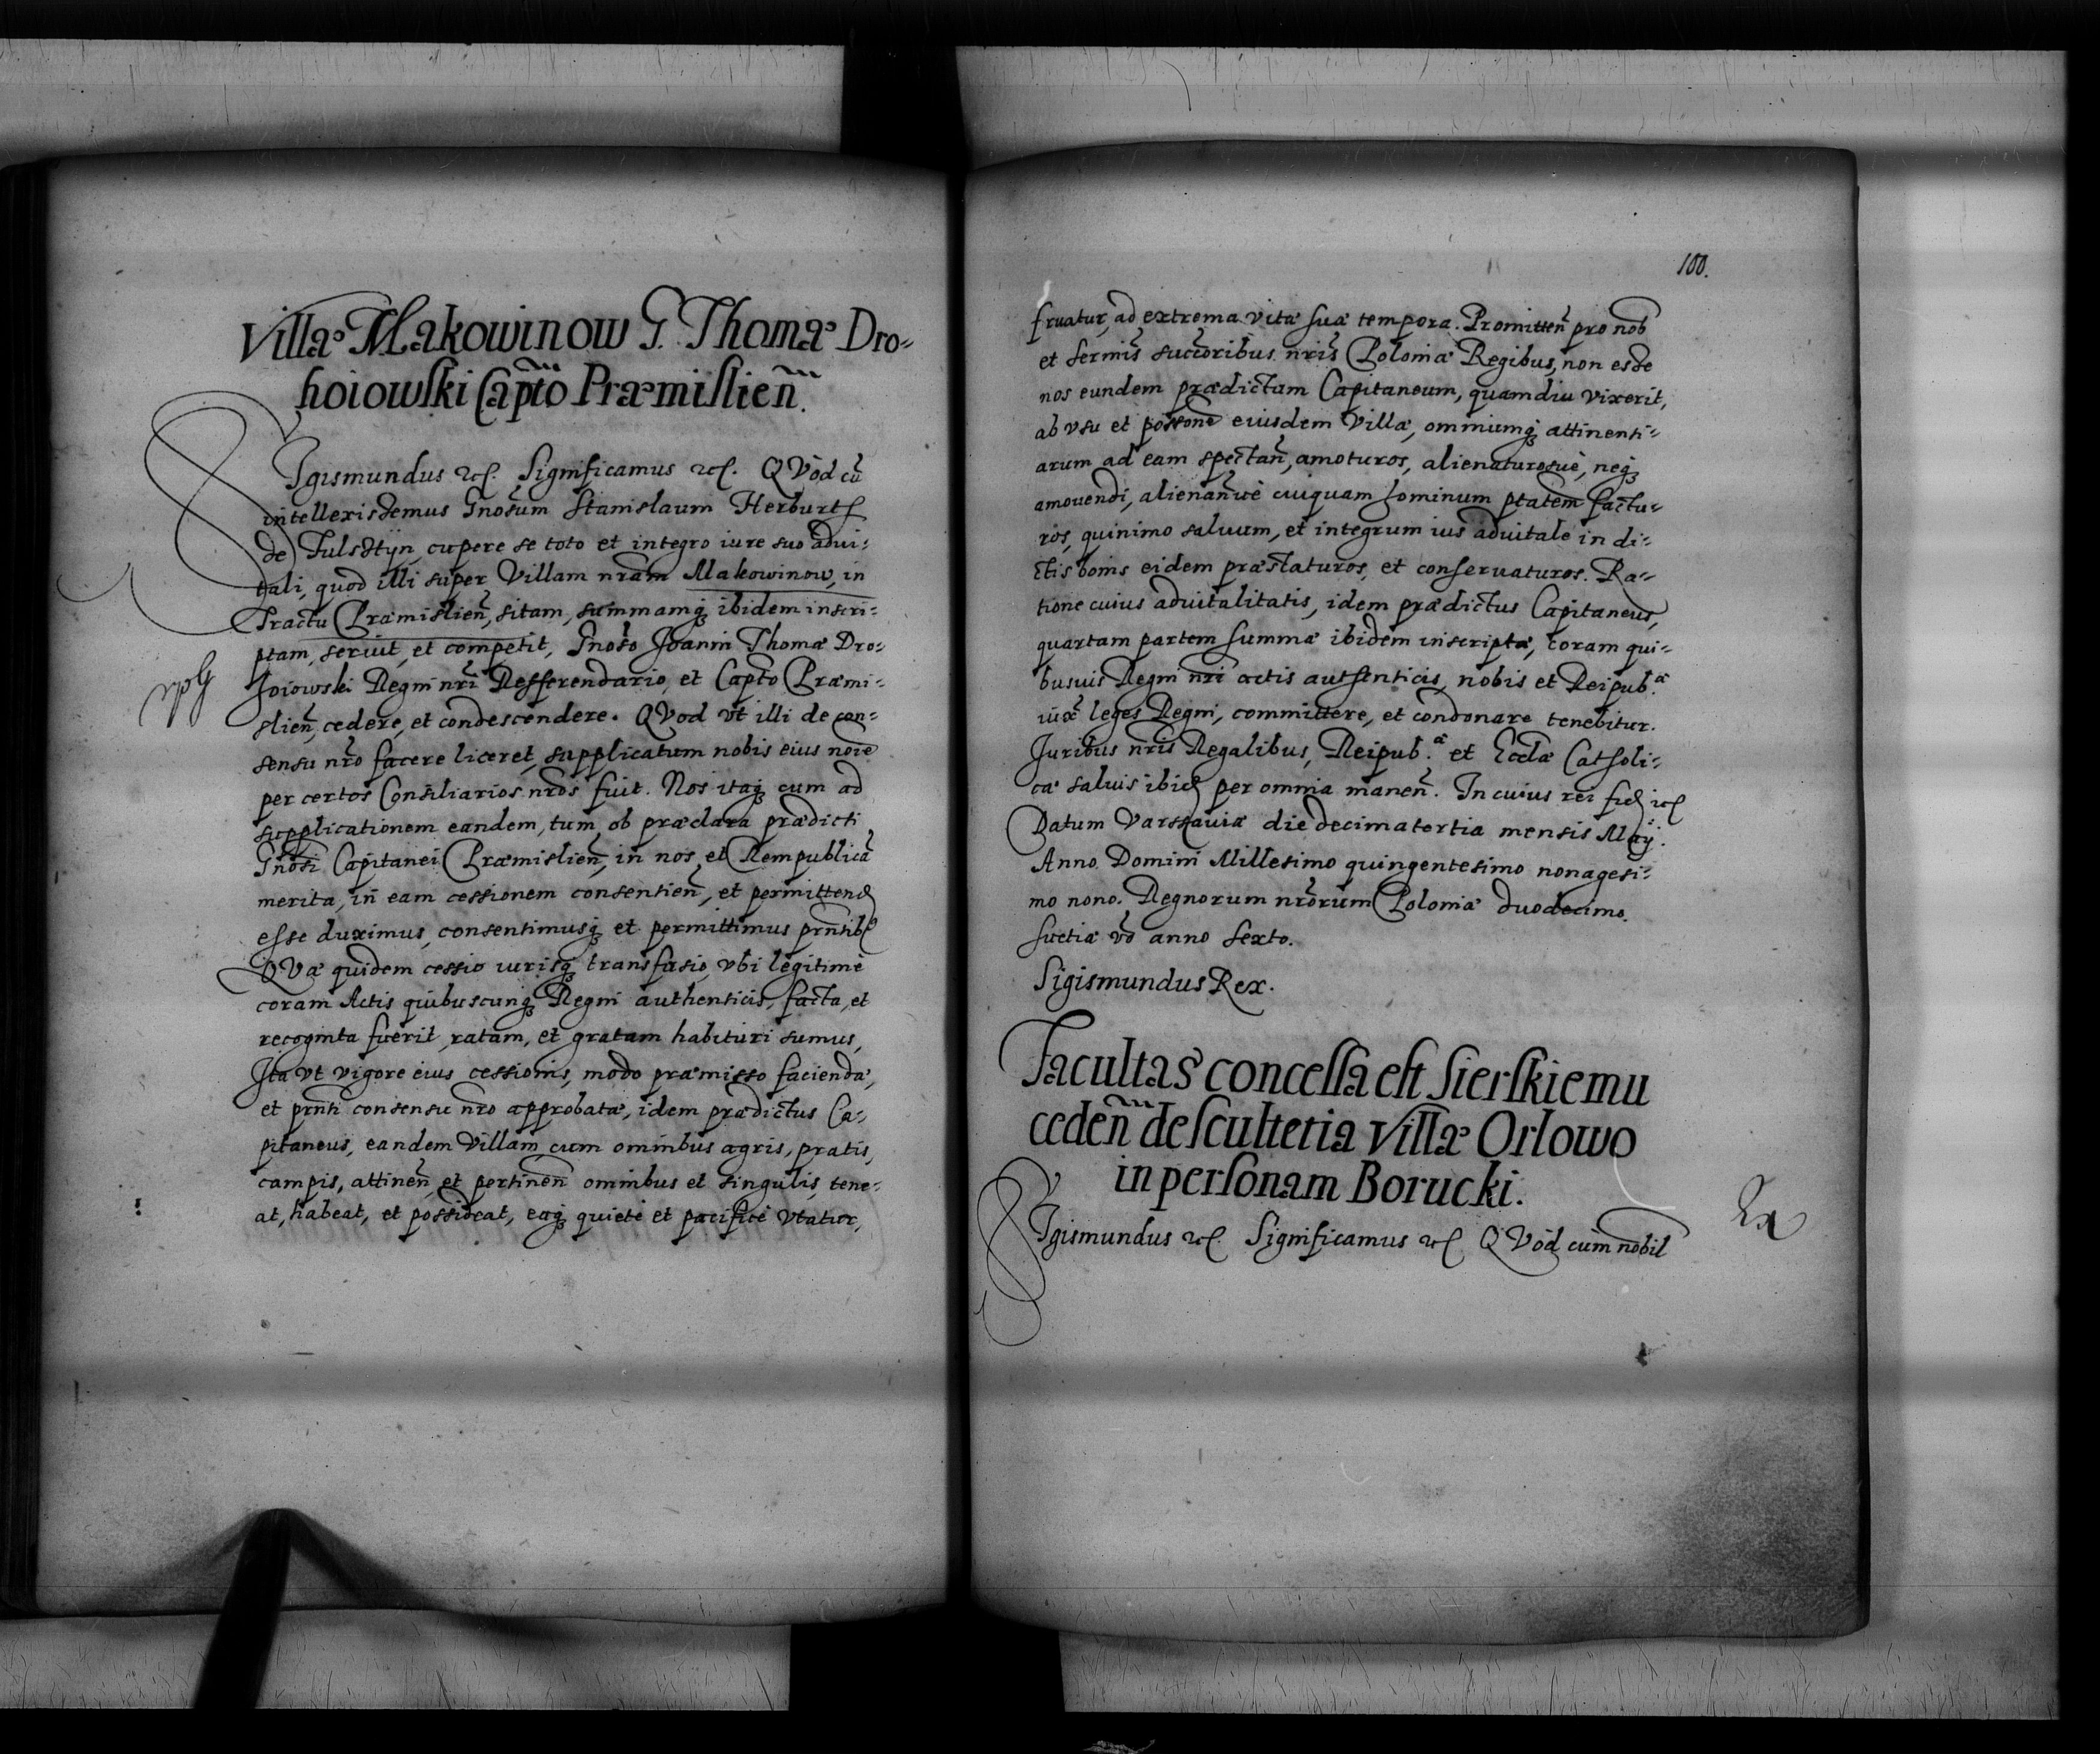 Villæ Makowinow G. Thomæ Dro-
hoiowski Capto Præmislien.
SIgismundus etc. Significamus etc. QVod cu
intellexissemus Gnosum Stanislaum Herburth
de Fulschtijn, cupere se toto et integro iure suo advi-
tali, quod illi super Villam nram Makowinow, in
Tractu Præmislien, sitam, summamq ibidem inscri-
ptam, seruit, et competit, Gnoso Joanni Thomæ Dro-
hoiowski Regni nri Refferendario, et Capto Præmi-
slien, cedere, et condescendere. QVod vt illi de con-
sensu nro facere liceret, supplicatum nobis eius noie
per certos Consiliarios nros fuit. Nos itaq cum ad
supplicationem eandem, tum, ob præclara prædicti
Gnosi Capitanei Præmislien, in nos, et Rempublica
merita, in eam cessionem consentien, et permittend
esse duximus, consentimusq et permittimus prntib
QVæ quidem cessio iurisq transfusio, vbi legitimè
coram Actis quibuscunq Regni authenticis, facta, et
recognita fuerit, ratam, et gratam habituri sumus,
Ita vt vigore eius cessionis, modo præmisso faciendæ,
et prnti consensu nro approbatæ, idem prædictus Ca-
pitaneus, eandem Villam, cum omnibus agris, pratis,
campis, attinen, et pertinen omnibus et singulis, tene-
at, habeat, et possideat, eaq quietè et pacificè vtatur,
100.
fruatur, ad extrema vitæ suæ tempora. Promitten pro nob
et sermis succoribus nris Poloniæ Regibus, non esse
nos eundem prædictum Capitaneum, quamdiu vixerit,
ab vsu et possone eiusdem Villæ, omniumq attinenti-
arum ad eam spectan, amoturos, alienaturosuè, neq
amouendi, alienan'uè cuiquam hominum ptatem factu-
ros, quinimo saluum, et integrum ius aduitale in di-
ctis bonis eidem præstaturos, et conseruaturos. Ra-
tione cuius aduitalitatis, idem prædictus Capitaneus,
quartam partem summæ ibidem inscriptæ, coram qui-
busuis Regni nri actis authenticis, nobis et Reipub.æ
iuxe leges Regni, committere, et condonare tenebitur.
Iuribus nris Regalibus, Reipub.æ et Ecclæ Catholi-
cæ saluis ibid per omnia manen. In cuius rei fid etc
Datum Varshauiæ die decimatertia mensis Maij.
Anno Domini Millesimo quingentesimo nonagesi-
mo nono. Regnorum nrorum Poloniæ duodecimo.
Suetiæ vo anno sexto.
Sigismundus Rex.
Facultas concessa est Sierskiemu
ceden de scultetia Villæ Orlowo
in personam Borucki.
SIgismundus etc. Significamus etc QVod cum nobil